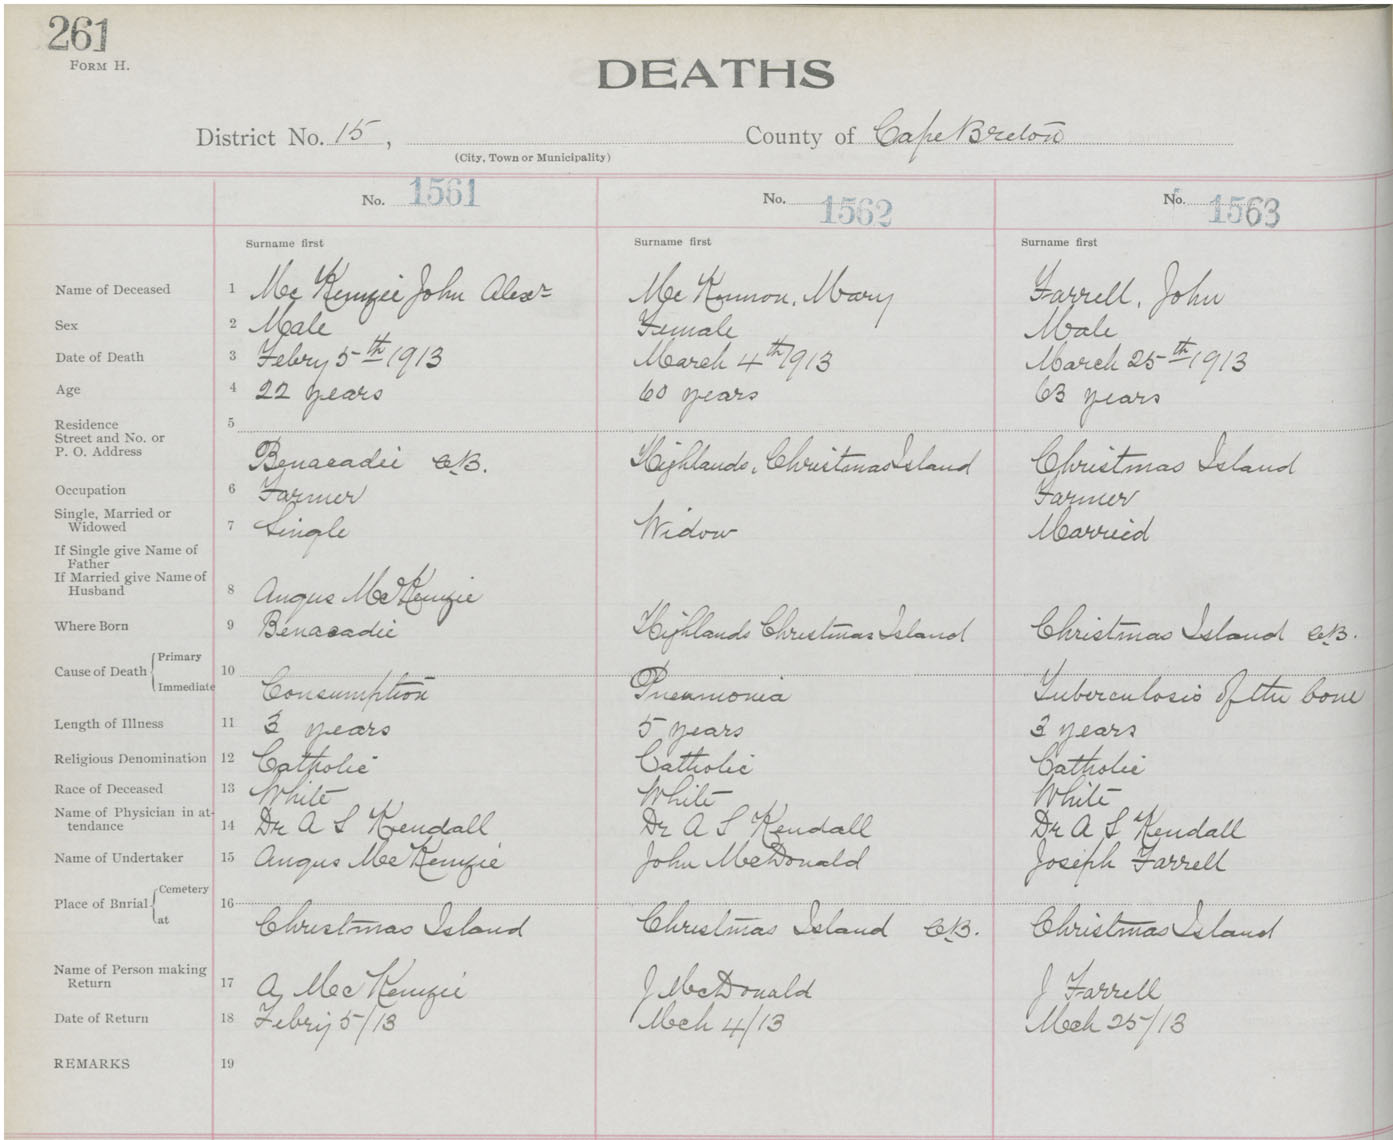 261
FORM H.
DEATHS
District No. 15, County of Cape Breton
(City, Town or Municipality)
No. 1561 No. 1562 No. 1563
Surname first Surname first Surname first
Name of Deceased 1 McKenzie John Alexr McKinnon, Mary Farrell, John
Sex 2 Male Female Male
Date of Death 3 Febry 5th 1913 March 4th 1913 March 25th 1913
Age 4 22 years 60 years 63 years
Residence 5
Street and No. or
P. O. Address Benacadie C.B. Highlands, Christmas Island Christmas Island
Occupation 6 Farmer Farmer
Single, Married or
Widowed 7 Single Widow Married
If Single give Name of
Father
If Married give Name of
Husband 8 Angus McKenzie
Where Born 9 Benacadie Highlands Christmas Island Christmas Island C.B.
Cause of Death { Primary 10
Immediate Consumption Pneumonia Tuberculosis of the bone
Length of Illness 11 3 years 5 years 3 years
Religious Denomination 12 Catholic Catholic Catholic
Race of Deceased 13 White White White
Name of Physician in at-
tendance 14 Dr A S Kendall Dr A S Kendall Dr A S Kendall
Name of Undertaker 15 Angus McKenzie John McDonald Joseph Farrell
Place of Burial { Cemetery 16
at Christmas Island Christmas Island C.B. Christmas Island
Name of Person making
Return 17 A McKenzie J McDonald J Farrell
Date of Return 18 Febry 5/13 Mch 4/13 Mch 25/13
REMARKS 19